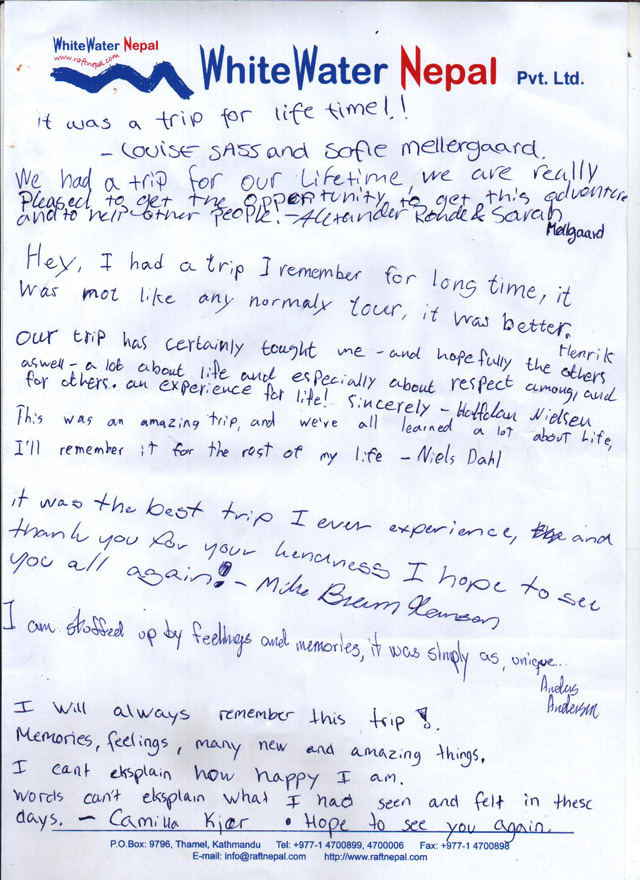 WhiteWater Nepal
www.raftnepal.com
WhiteWater Nepal Pvt. Ltd.
it was a trip for life time!.!
- LOUISE SASS and Sofie Mellergaard.
We had a trip for our lifetime, we are really
Pleased to get the opportunity to get this adventure
and to help other people! - Alexander Rohde & Sarah
Mellgaard
Hey, I had a trip I remember for long time, it
was mot like any normalx tour, it was better.
Henrik
Our trip has certainly tought me - and hopefully the others
aswell - a lot about life and especially about respect among, and
for others. an experience for life! Sincerely - Nielsen
This was an amazing trip, and we've all learned a lot about Life,
I'll remember it for the rest of my life - Niels Dahl
it was the best trip I ever experience, and
thank you for your kendness I hope to see
you all again! - Mike
I am stoffed up by feelings and memories, it was simply as, unique...
Anders
Andersen
I will always remember this trip!.
Memories, feelings, many new and amazing things.
I cant eksplain how happy I am.
words can't eksplain what I had seen and felt in these
days. - Camilla Kjær • Hope to see you again.
P.O.Box: 9796, Thamel, Kathmandu Tel: +977-1 4700899, 4700006 Fax: +977-1 4700898
E-mail: info@raftnepal.com http://www.raftnepal.com